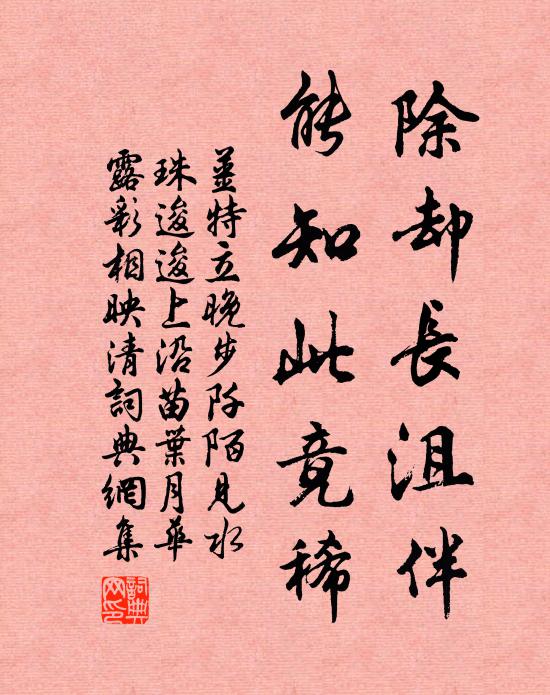 除却長沮伴
能知此竟稀
姜特立晚步阡陌見水
珠逡逡上沿苗葉月華
露彩相映清詞典網集
詞典
网印